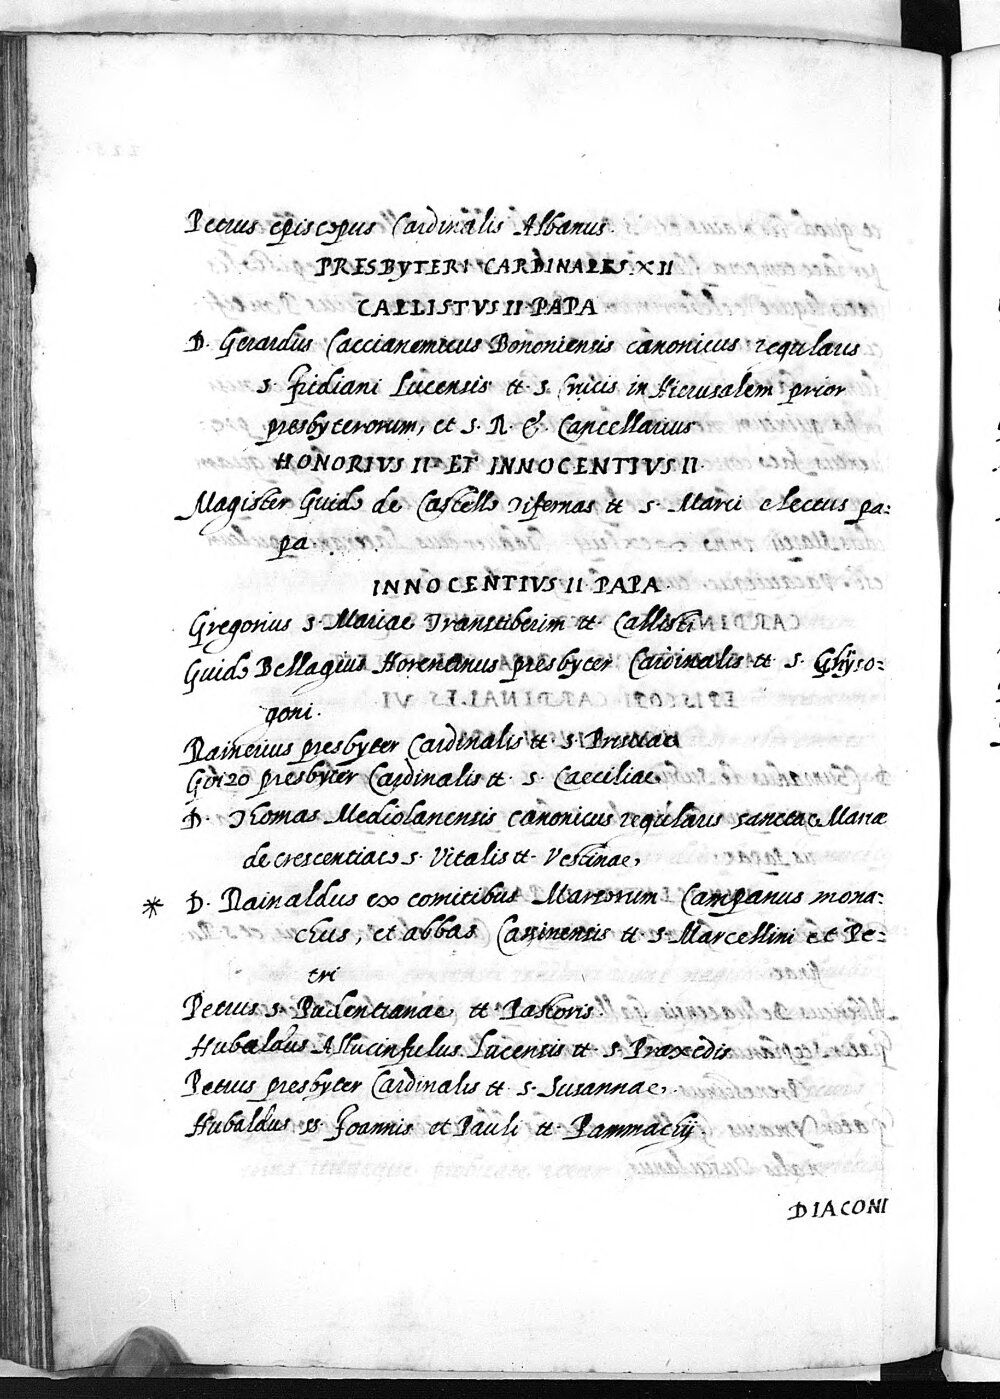 Petrus episcopus Cardinalis Albanus.
PRESBYTERI CARDINALES. XII
CALLISTVS II PAPA
D. Gerardus Caccianemicus Bononiensis canonicus regularis
s. Fridiani Lucensis tt. s. Crucis in Hierusalem prior
presbyterorum, et s. R. E. Cancellarius
HONORIVS II ET INNOCENTIVS II.
Magister Guido de Castello Tifernas tt. s. Marci electus pa:
pa.
INNOCENTIVS II PAPA.
Gregorius s. Mariae Transtiberim tt. Callisti
Guido Bellagius Florentinus presbyter Cardinalis tt. s. Chryso:
goni.
Rainerius presbyter Cardinalis tt. s. Priscae
Goizo presbyter Cardinalis tt. s. Caeciliae,
D. Thomas Mediolanensis canonicus regularis sanctae Mariae
de crescentiaco s. Vitalis tt. Vestinae,
* D. Rainaldus ex comitibus Marsorum Campanus mona:
chus, et abbas Cassinensis tt. s. Marcellini et Pe:
tri
Petrus s. Pudentianae tt. Pastoris
Hubaldus Allucinfulus Lucensis tt. s. Praxedis
Petrus presbyter Cardinalis tt. s. Susannae,
Hubaldus ss. Joannis et Pauli tt. Pammachij.
DIACONI